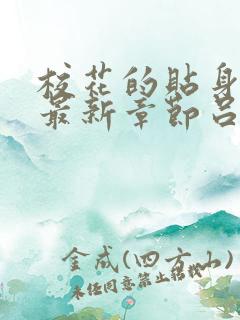 校花的贴身
最新章节吕
金成(四方小)
未经同意禁止转载